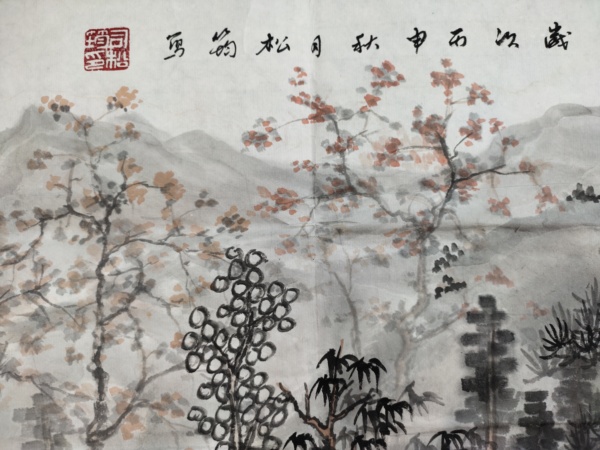 歲次丙申秋月松筠写
司松筠印